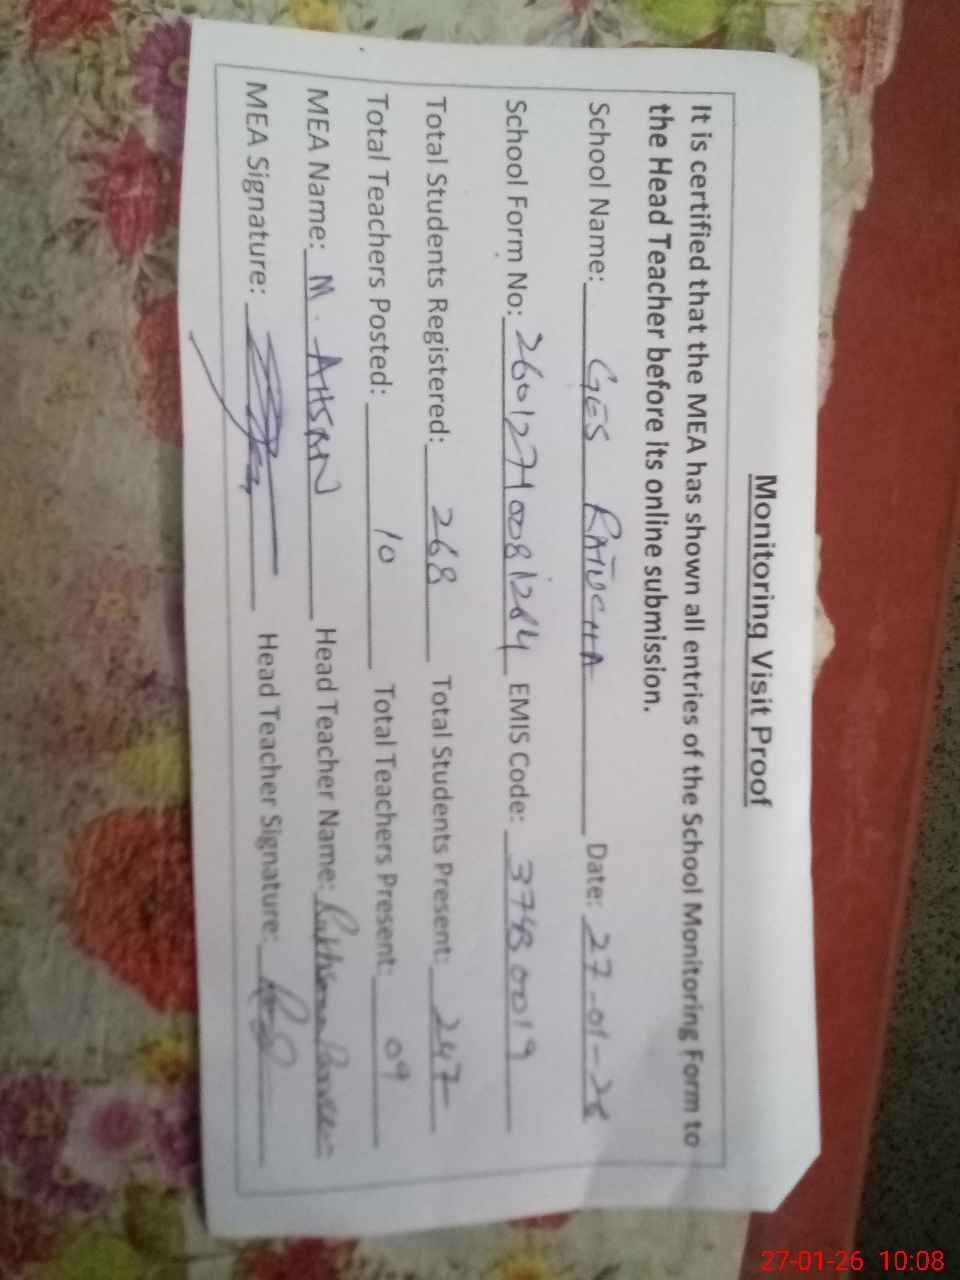 Monitoring Visit Proof
It is certified that the MEA has shown all entries of the School Monitoring Form to
the Head Teacher before its online submission.
School Name: GES RATUCHA Date: 27-01-26
School Form No: 26012710081284 EMIS Code: 37480019
Total Students Registered: 268 Total Students Present: 247
Total Teachers Posted: 10 Total Teachers Present: 09
MEA Name: M. AHSAN Head Teacher Name: Rukhsana Parveen
MEA Signature: Head Teacher Signature:
27-01-26 10:08